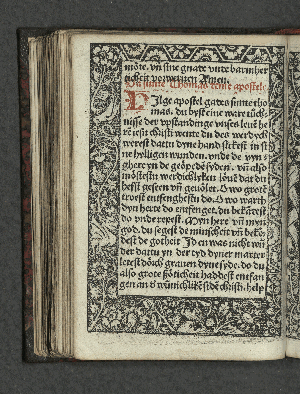 möte. vn sine gnade vnde barmher
ticheit vorweruen Amen.
Van sunte Thomas deme apostel
Hilge apostel gades sunte tho
mas. du byst eine ware tüch
nisse der vpstandinge vnses leuē he
rē iesu christi wente du des werdych
werest dattu dyne hand stekest in si
ne hylligen wunden. vnde de vyn
ghere yn de geöpedē syden. vn also
mostestu werdichlyken
hefst geseen vn geuölet. O wo grote
troest entfenghestu do. O wo warth
dyn herte do entfenget. du bekāest
do vnde repest. Myn here vn myn
god. du segest de minscheit vn bekō
dest de gotheit Id en was nicht
der dattu yn der tyd dyner marter
leest dörch grauen dyne syde. do du
also grote sötichēit haddest entfan
gen an christi. help